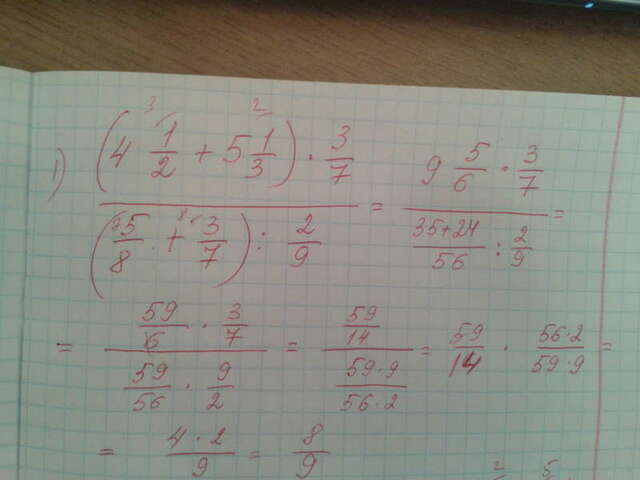 1) ((4 1/2 + 5 1/3) · 3/7) / ((5/8 + 3/7) : 2/9) = (9 5/6 · 3/7) / ((35+24)/56 : 2/9) =
= (59/6 · 3/7) / (59/56 · 9/2) = (59/14) / ((59·9)/(56·2)) = 59/14 · (56·2)/(59·9) =
= (4·2)/9 = 8/9